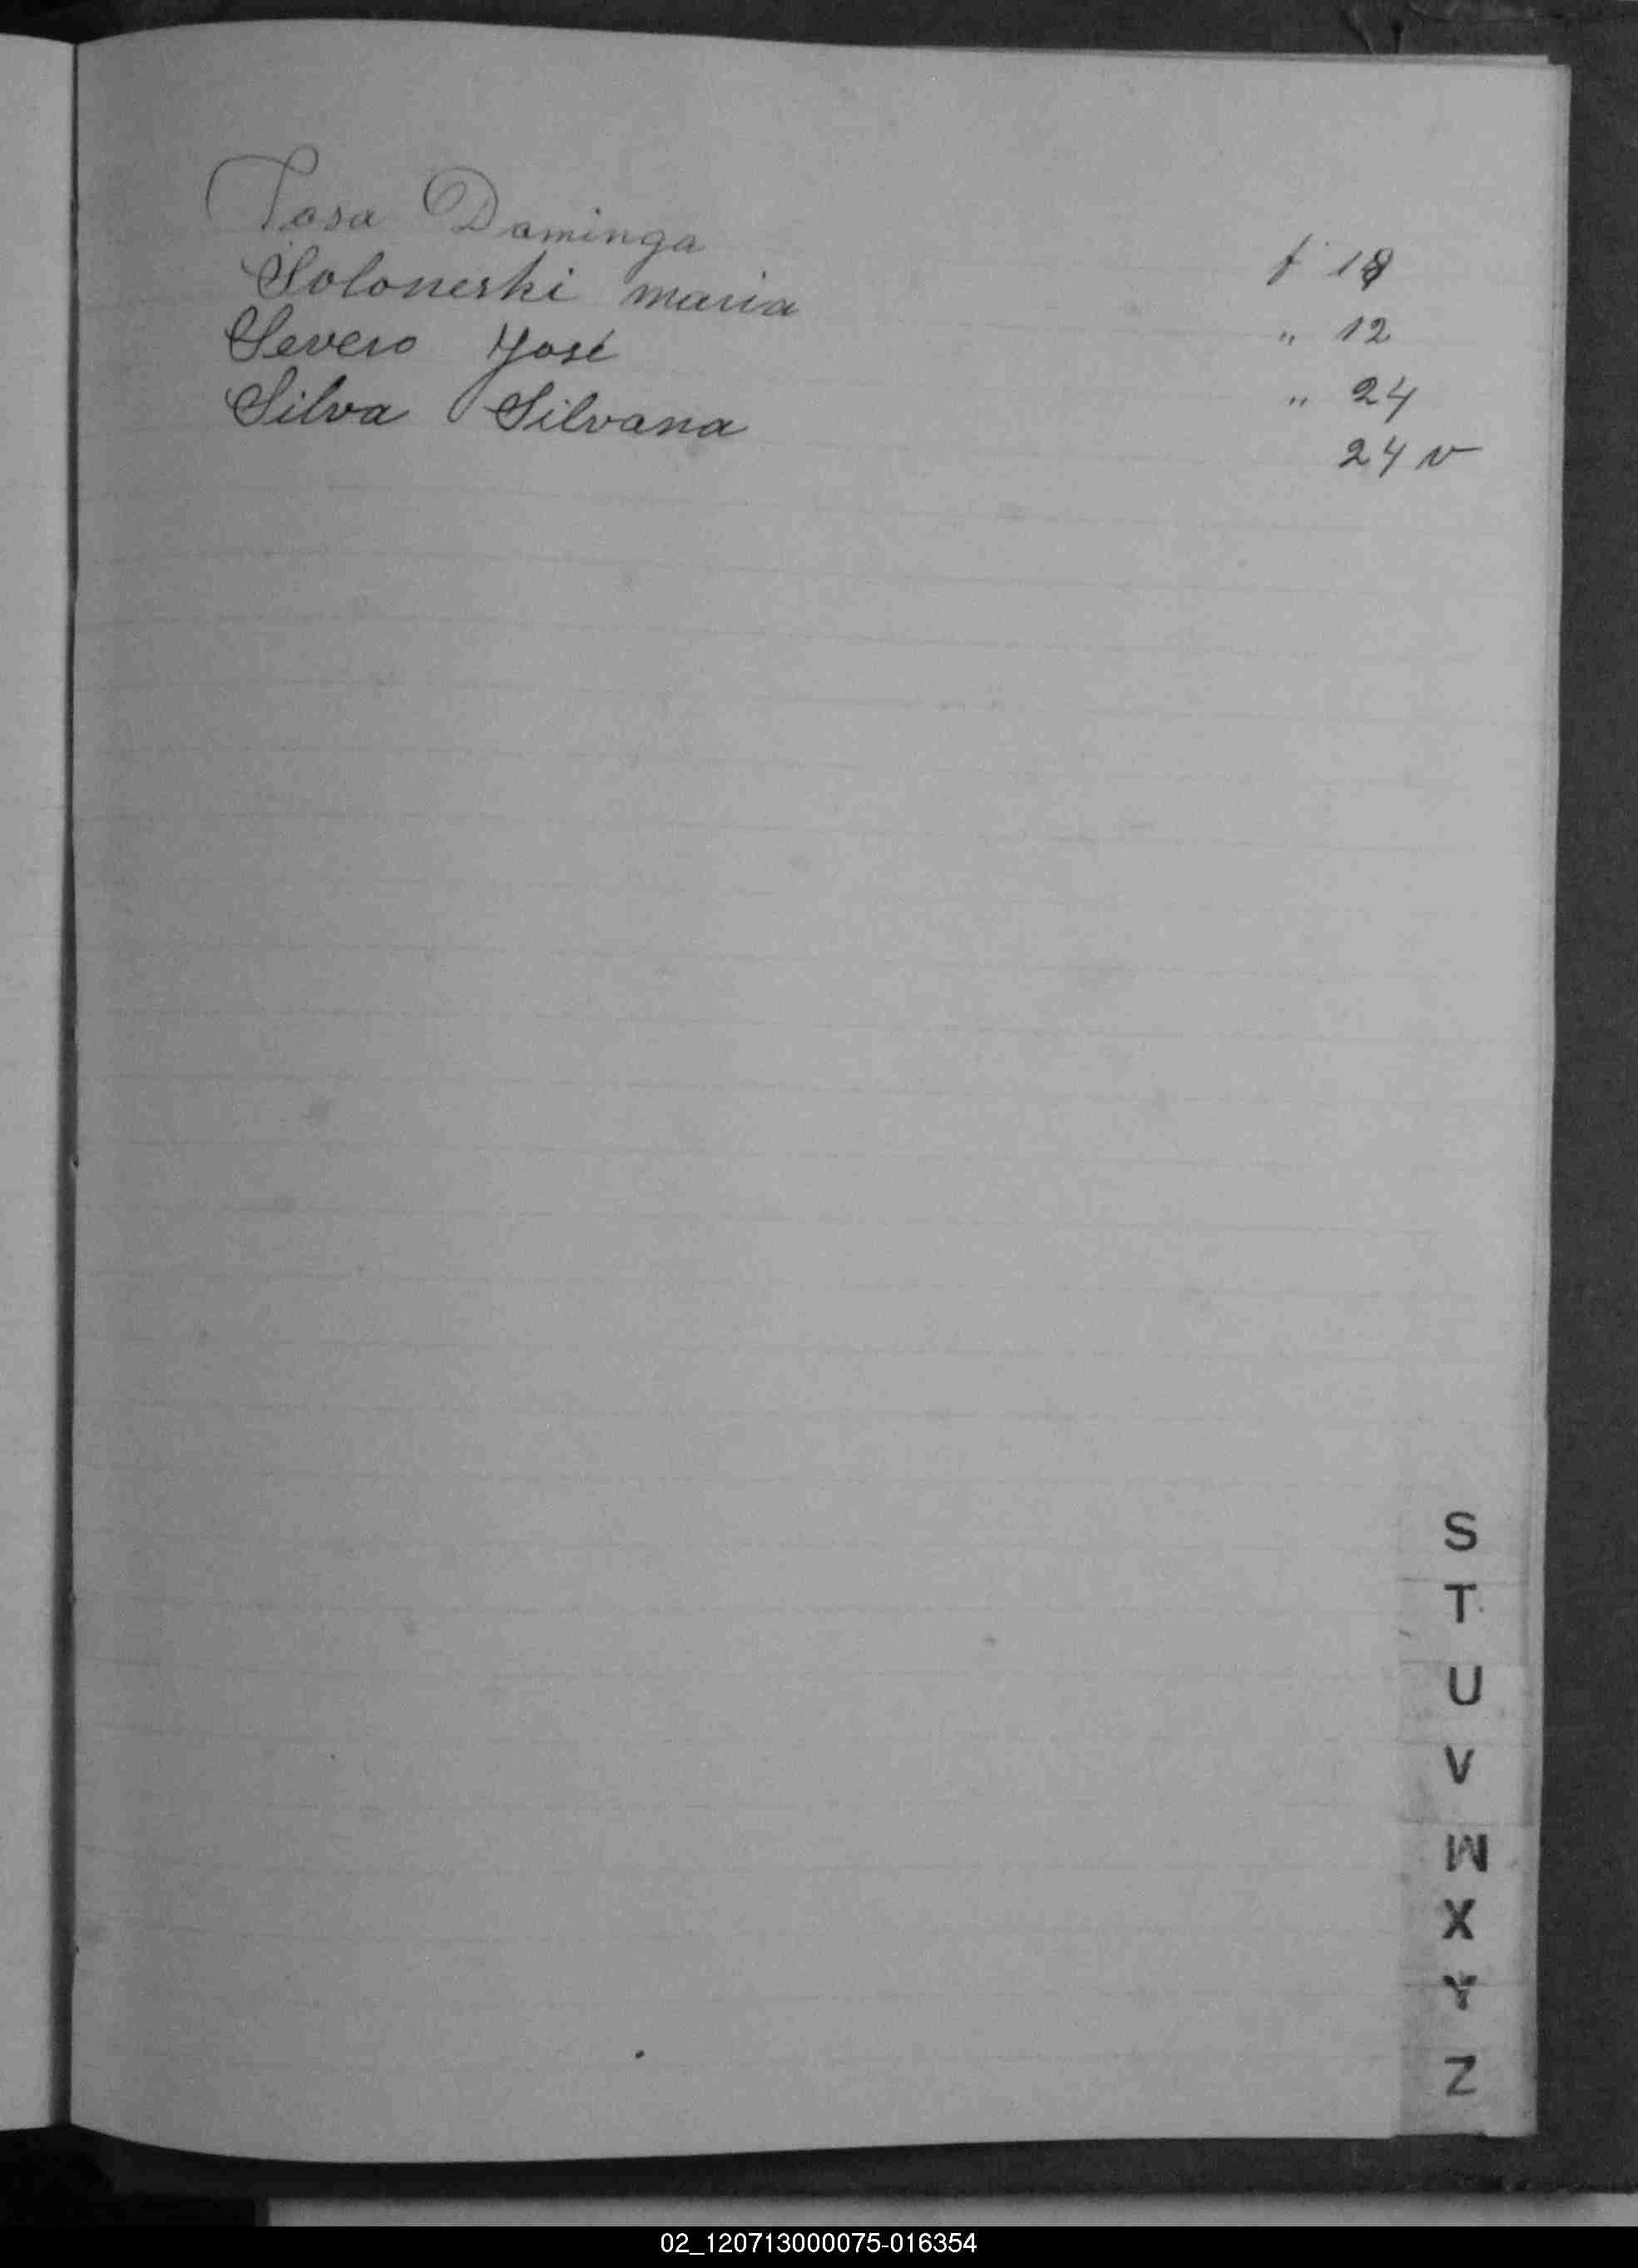 Tosa Daminga f 18
Soloneski maria " 12
Severo José " 24
Silva Silvana 24 v
S
T
U
V
W
X
Y
Z
02_120713000075-016354